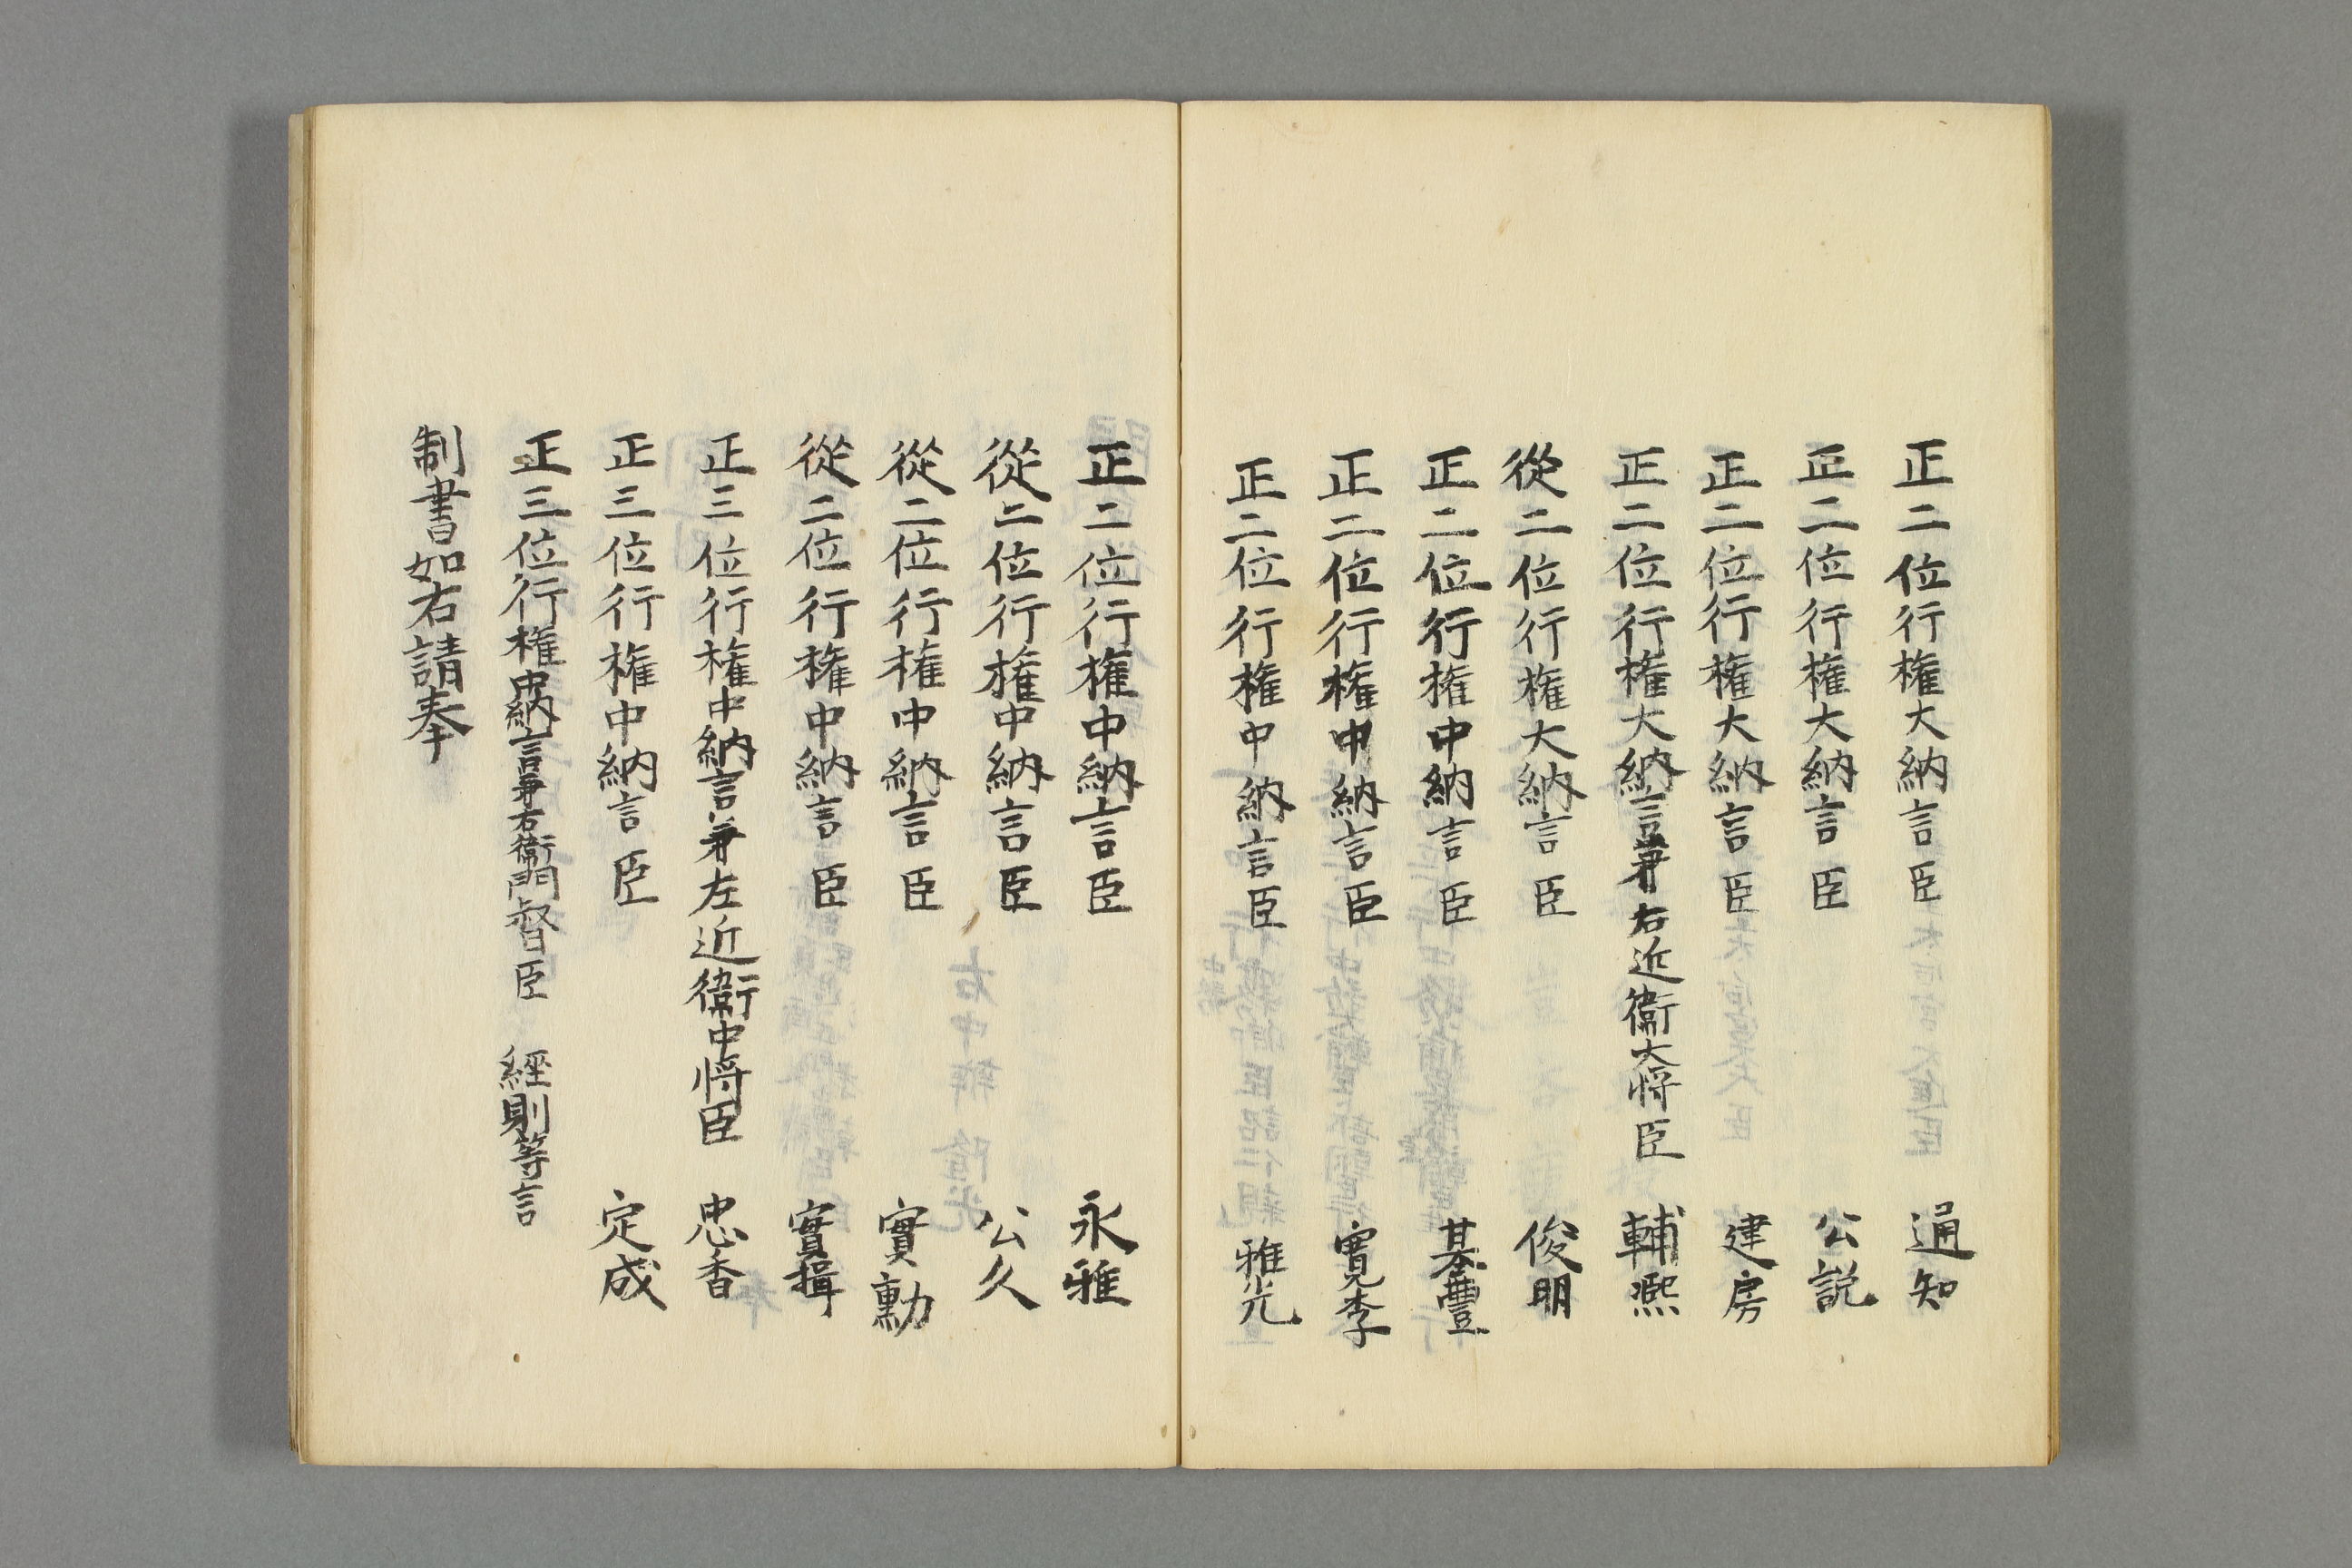 正二位行権大納言臣 通知
正二位行権大納言臣 公説
正二位行権大納言臣 建房
正二位行権大納言兼右近衛大将臣 輔熙
從二位行権大納言臣 俊明
正二位行権中納言臣 基豐
正二位行権中納言臣 寛季
正二位行権中納言臣 雅光
正二位行権中納言臣 永雅
從二位行権中納言臣 公久
從二位行権中納言臣 實勳
從二位行権中納言臣 實揖
正三位行権中納言兼左近衛中将臣 忠香
正三位行権中納言臣 定成
正三位行権中納言兼右衛門督臣 經則等言
制書如右請奉